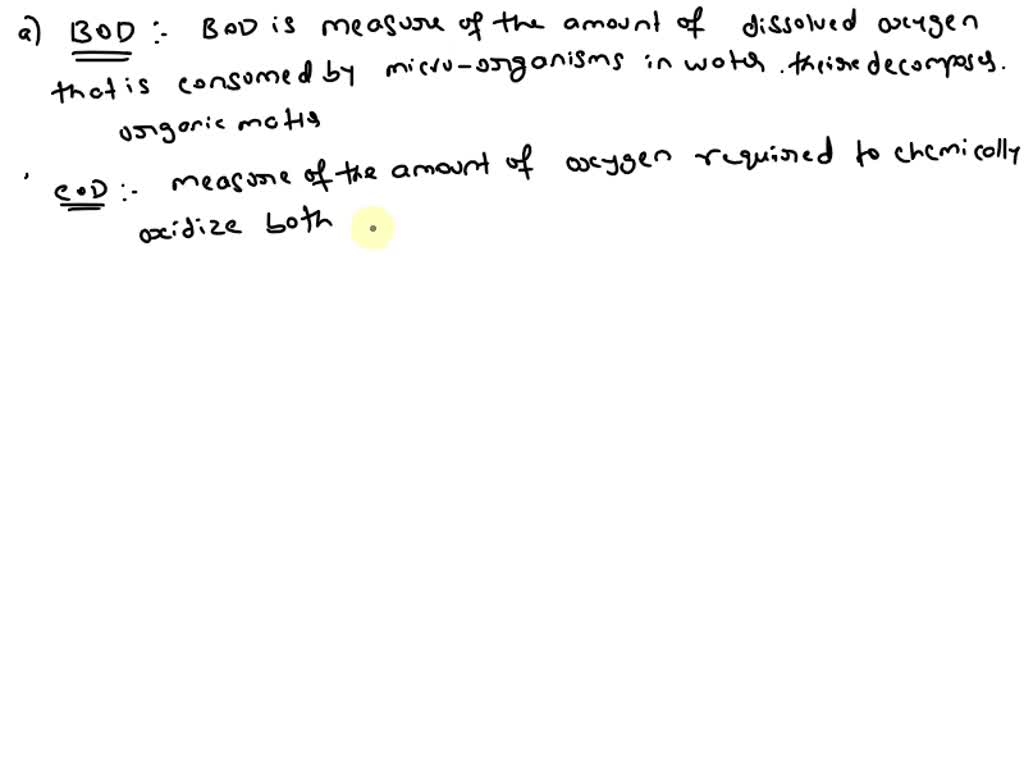 a) BOD :- BOD is measure of the amount of dissolved oxygen
that is consumed by micro-organisms in water. decomposes.
organic
COD :- measure of the amount of oxygen required to chemically
oxidize both